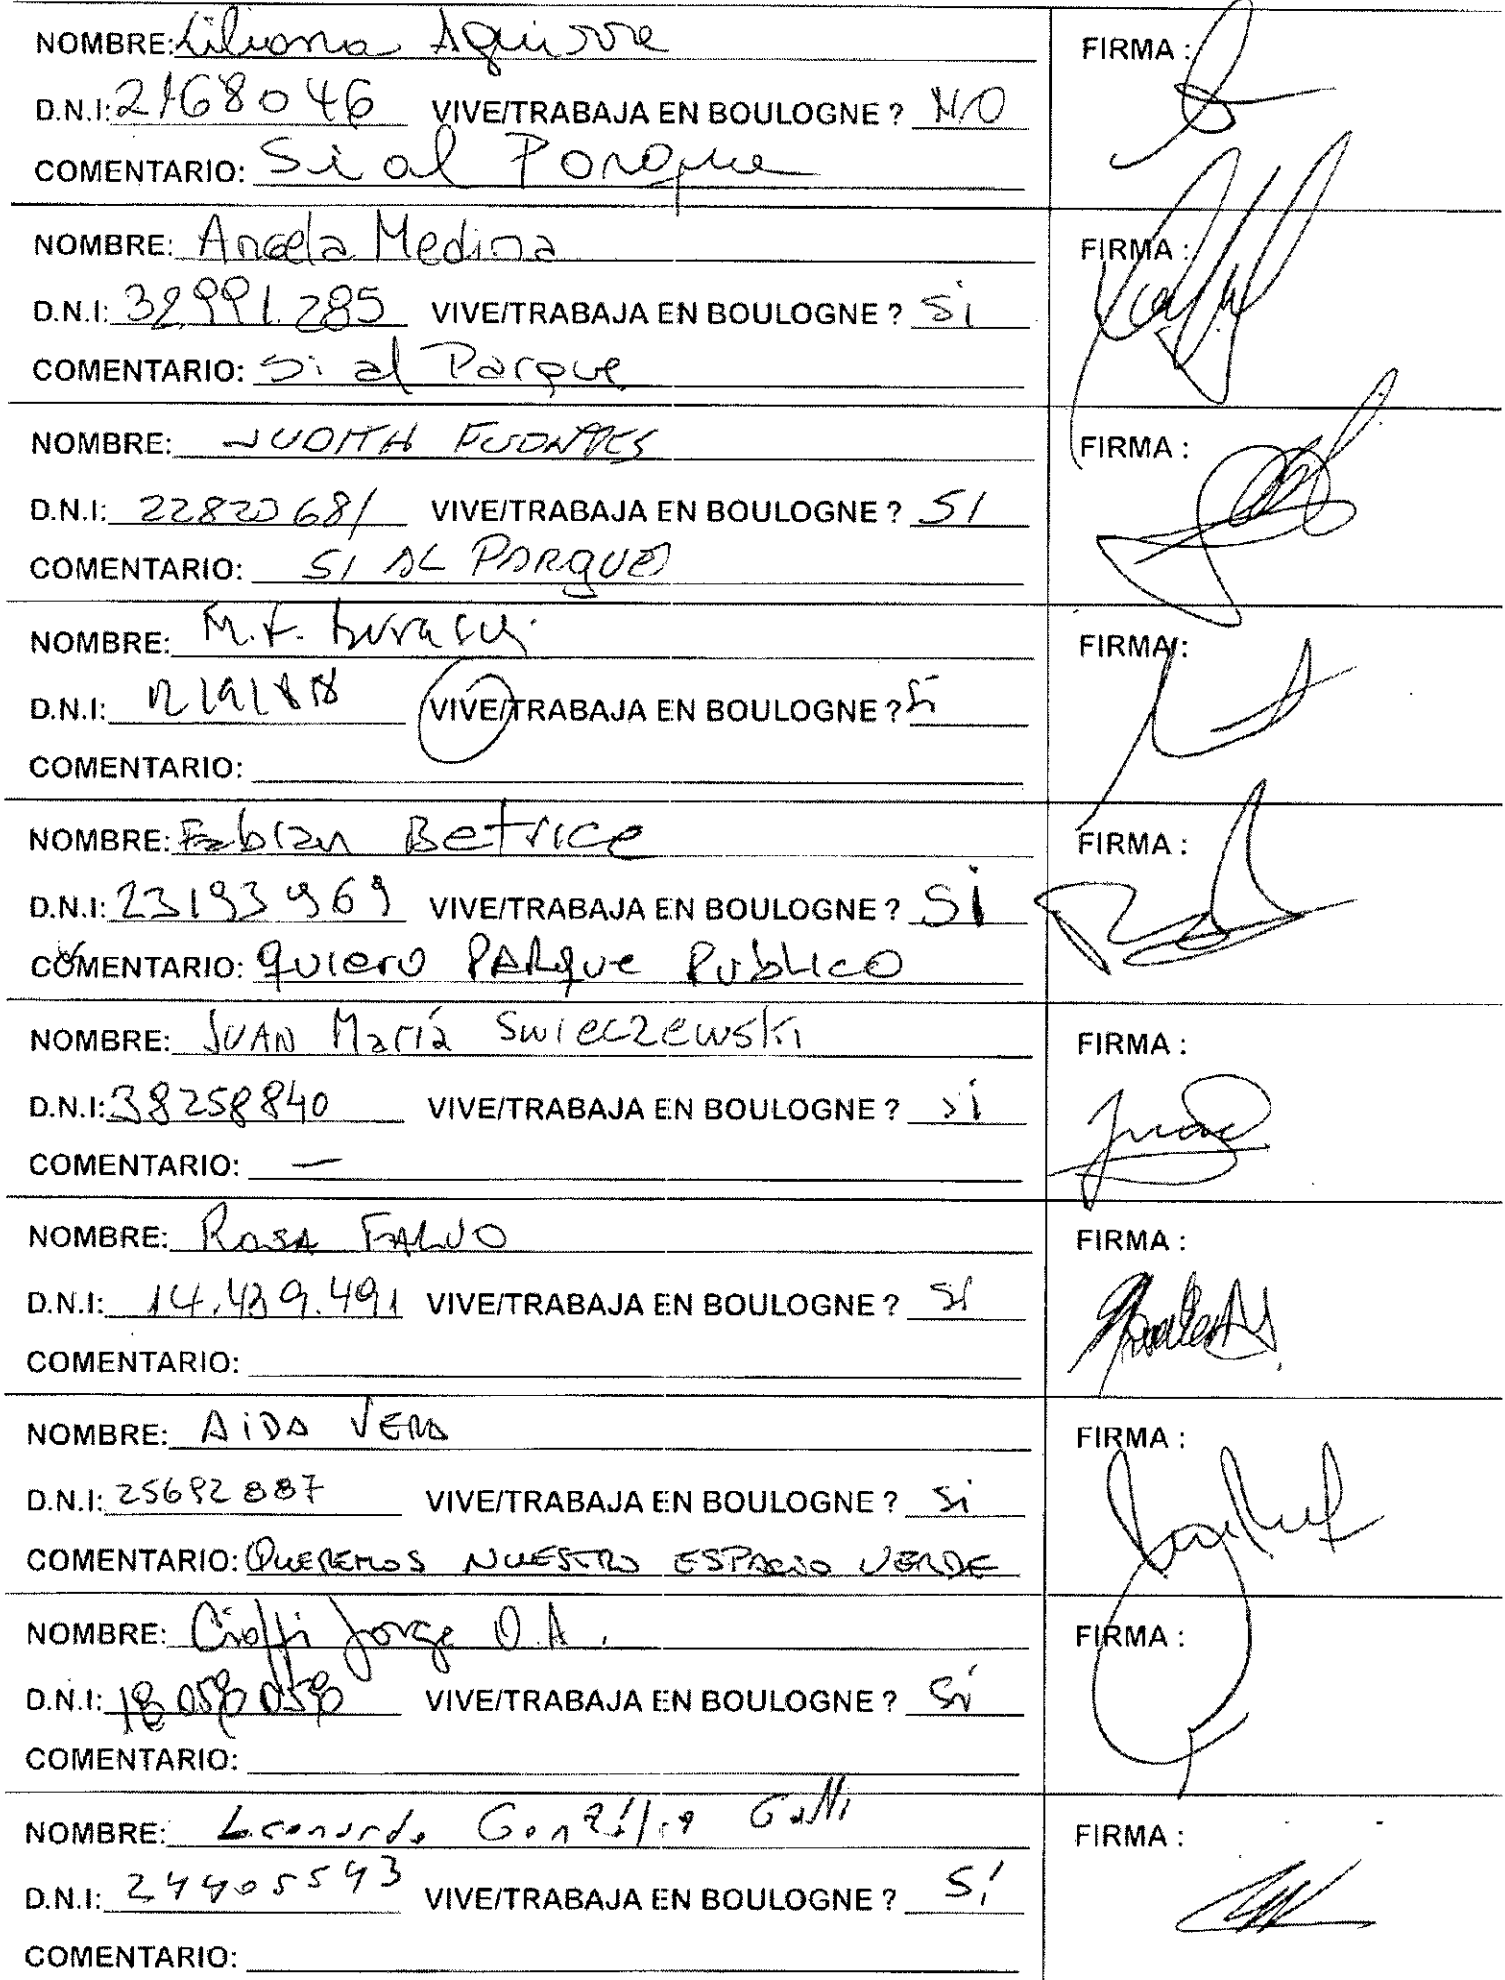 NOMBRE: Liliana Aguirre FIRMA :
D.N.I: 2168046 VIVE/TRABAJA EN BOULOGNE ? NO
COMENTARIO: Si al Parque
NOMBRE: Angela Medina FIRMA :
D.N.I: 32.991.285 VIVE/TRABAJA EN BOULOGNE ? Si
COMENTARIO: Si al Parque
NOMBRE: JUDITH FUENTES FIRMA :
D.N.I: 22820681 VIVE/TRABAJA EN BOULOGNE ? SI
COMENTARIO: SI AL PARQUE
NOMBRE: M.F. FIRMA :
D.N.I: VIVE/TRABAJA EN BOULOGNE ? Si
COMENTARIO:
NOMBRE: Fabian Betrice FIRMA :
D.N.I: 23193969 VIVE/TRABAJA EN BOULOGNE ? SI
COMENTARIO: quiero PARque Publico
NOMBRE: JUAN María Swieczewski FIRMA :
D.N.I: 38258840 VIVE/TRABAJA EN BOULOGNE ? si
COMENTARIO: —
NOMBRE: ROSA FALVO FIRMA :
D.N.I: 14.439.491 VIVE/TRABAJA EN BOULOGNE ? SI
COMENTARIO:
NOMBRE: AiDA VERA FIRMA :
D.N.I: 25692887 VIVE/TRABAJA EN BOULOGNE ? Si
COMENTARIO: QUEREMOS NUESTRO ESPACIO VERDE
NOMBRE: Cioffi Jorge O.A. FIRMA :
D.N.I: 18058058 VIVE/TRABAJA EN BOULOGNE ? Sí
COMENTARIO:
NOMBRE: Leonardo Galli FIRMA :
D.N.I: 24405543 VIVE/TRABAJA EN BOULOGNE ? Sí
COMENTARIO: